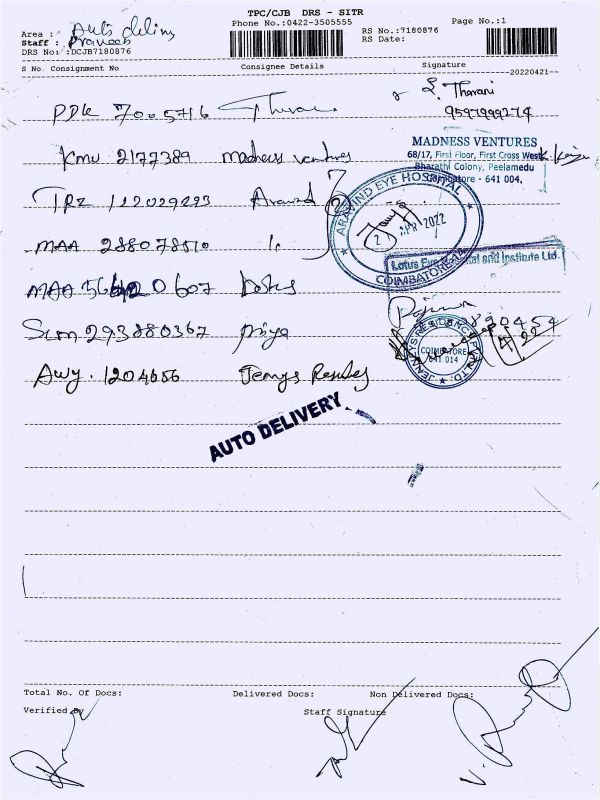 TPC/CJB DRS - SITR
Phone No.:0422-3505555
Page No.:1
Area : Auto delivy
Staff : Praveen
DRS No :DCJB7180876
RS No.:7180876
RS Date:
S No. Consignment No Consignee Details Signature
--20220421--
PDK 7005716 S. Tharani
9597999274
Kmu 2177389 Madness ventures
MADNESS VENTURES
68/17, First Floor, First Cross West
Bharathi Colony, Peelamedu
Coimbatore - 641 004.
TRZ 122029223 Aravind
ARAVIND EYE HOSPITAL
21 APR 2022
COIMBATORE-14
MAA 288078510
Lotus Eye Hospital and Institute Ltd.
MAA 564420607 Lotus
Sum 293880367 priya
JENNYS RESIDENCY PVT. LTD.
COIMBATORE
641 014
Awy. 1204656 Jennys Resdey
AUTO DELIVERY
Total No. Of Docs: Delivered Docs: Non Delivered Docs:
Verified By Staff Signature